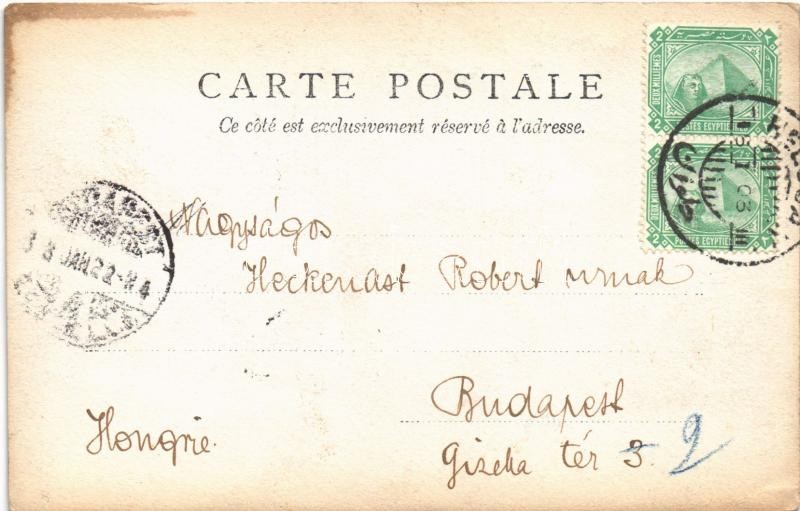 CARTE POSTALE
Ce côté est exclusivement réservé à l'adresse.
2 2
DEUX MILLIEMES
POSTES EGYPTIENNES
2 2
DEUX MILLIEMES
POSTES EGYPTIENNES
JAN 22
Nagyságos
Heckenast Robert urnak
Budapest
Hongrie.
Gizella tér 3. 2